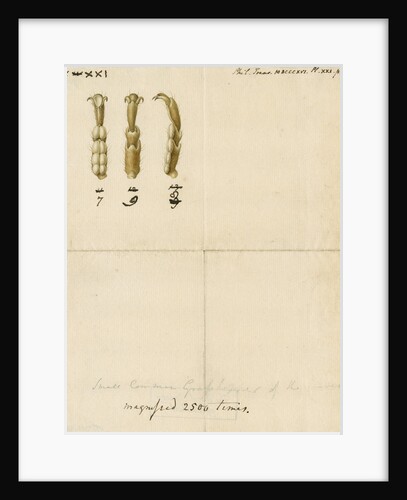 XXI
Phil. Trans. MDCCCXVI. Pl. XXI. p
7 9 8
Small Common Grasshopper of the
magnified 2500 times.